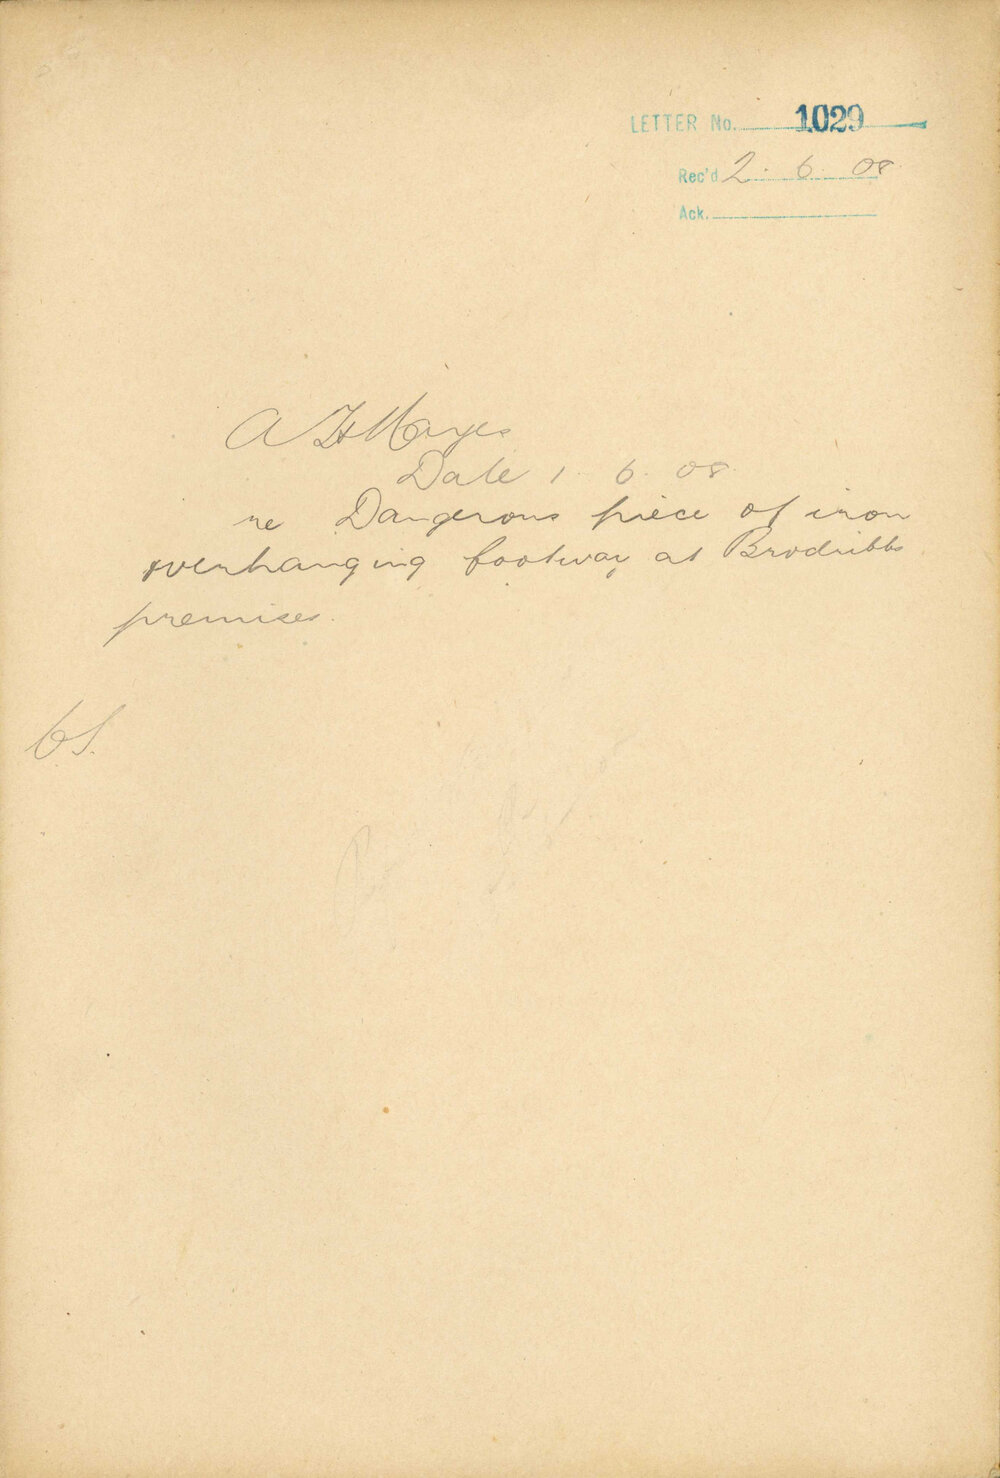 LETTER No. 1029
Rec'd 2. 6. 08.
Ack.
A H Mayes
Date 1. 6. 08.
re Dangerous piece of iron
overhanging footway at Brodribbs
premises.